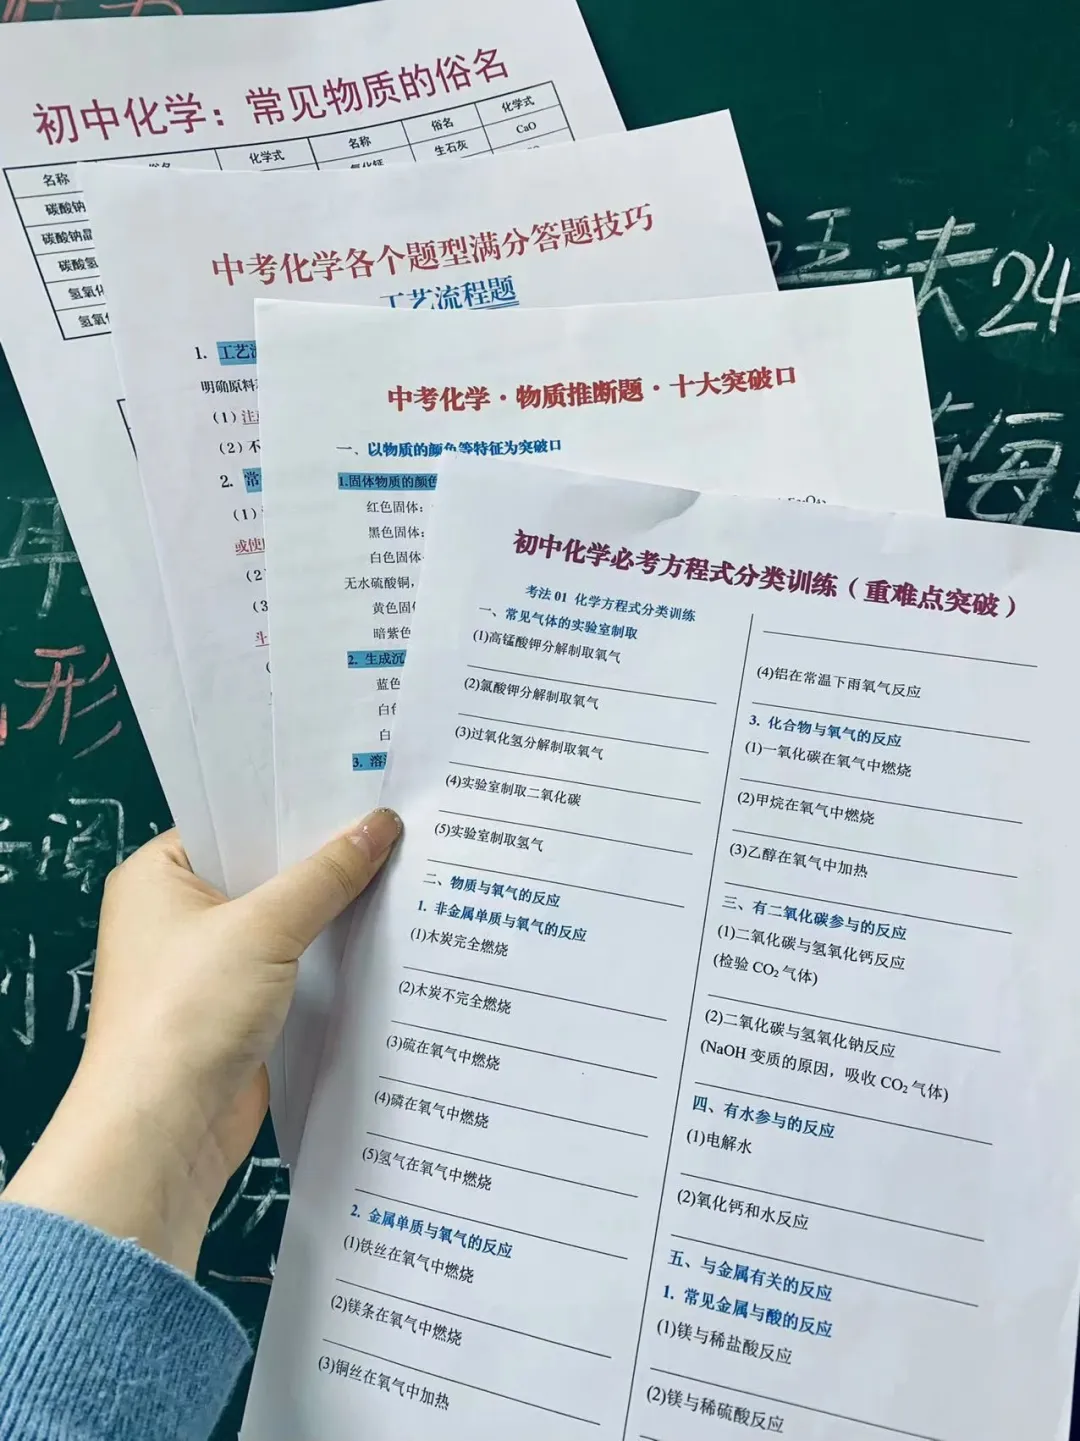 初中化学：常见物质的俗名
名称 俗名 化学式 名称 俗名 化学式
碳酸钠 生石灰 CaO
碳酸钠晶
碳酸氢
氢氧化
氢氧化
中考化学各个题型满分答题技巧
工艺流程题
1. 工艺流
明确原料
(1)
(2) 不
2. 常
(1)
或使
(2)
(3)
中考化学·物质推断题·十大突破口
一、以物质的颜色等特征为突破口
1.固体物质的颜色
红色固体：
黑色固体：
白色固体
无水硫酸铜，
黄色固体
暗紫色
2. 生成沉
蓝色
白色
白
3. 溶
初中化学必考方程式分类训练（重难点突破）
考法 01 化学方程式分类训练
一、常见气体的实验室制取
(1)高锰酸钾分解制取氧气
(2)氯酸钾分解制取氧气
(3)过氧化氢分解制取氧气
(4)实验室制取二氧化碳
(5)实验室制取氢气
二、物质与氧气的反应
1. 非金属单质与氧气的反应
(1)木炭完全燃烧
(2)木炭不完全燃烧
(3)硫在氧气中燃烧
(4)磷在氧气中燃烧
(5)氢气在氧气中燃烧
2. 金属单质与氧气的反应
(1)铁丝在氧气中燃烧
(2)镁条在氧气中燃烧
(3)铜丝在氧气中加热
(4)铝在常温下雨氧气反应
3. 化合物与氧气的反应
(1)一氧化碳在氧气中燃烧
(2)甲烷在氧气中燃烧
(3)乙醇在氧气中加热
三、有二氧化碳参与的反应
(1)二氧化碳与氢氧化钙反应
(检验 CO₂ 气体)
(2)二氧化碳与氢氧化钠反应
(NaOH 变质的原因，吸收 CO₂ 气体)
四、有水参与的反应
(1)电解水
(2)氧化钙和水反应
五、与金属有关的反应
1. 常见金属与酸的反应
(1)镁与稀盐酸反应
(2)镁与稀硫酸反应
语法24
形